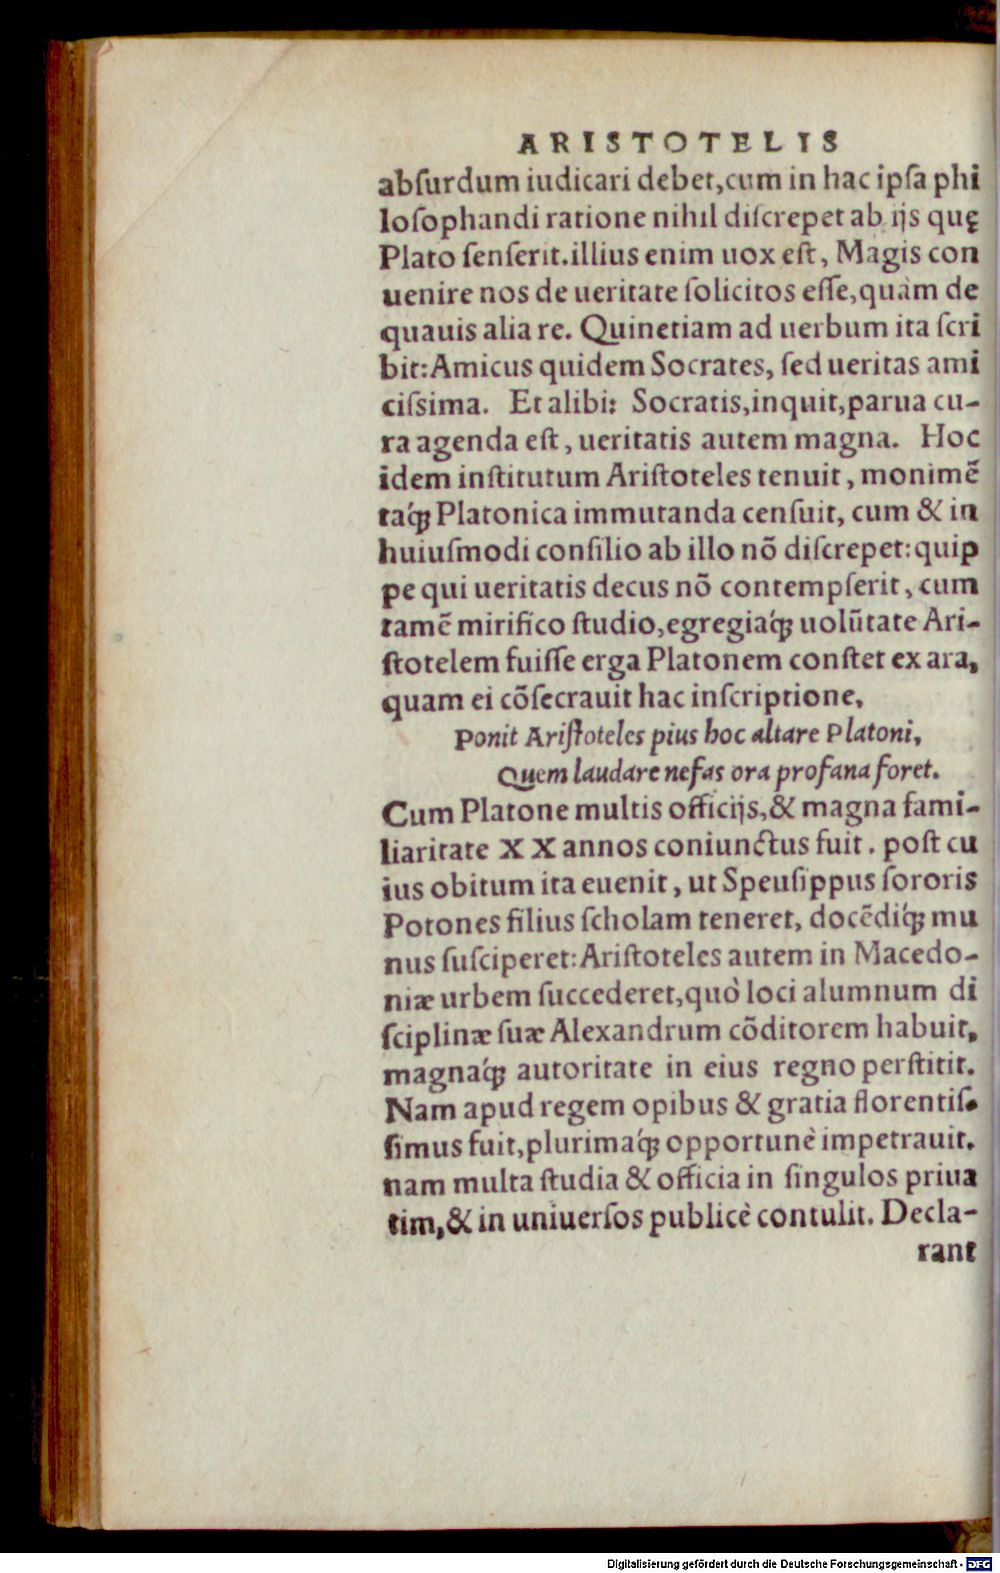 ARISTOTELIS
absurdum iudicari debet, cum in hac ipsa phi
losophandi ratione nihil discrepet ab ijs quę
Plato senserit. illius enim uox est, Magis con
uenire nos de ueritate solicitos esse, quàm de
quauis alia re. Quinetiam ad uerbum ita scri
bit: Amicus quidem Socrates, sed ueritas ami
cissima. Et alibi: Socratis, inquit, parua cu-
ra agenda est, ueritatis autem magna. Hoc
idem institutum Aristoteles tenuit, monimẽ
taq́; Platonica immutanda censuit, cum & in
huiusmodi consilio ab illo nõ discrepet: quip
pe qui ueritatis decus nõ contempserit, cum
tamẽ mirifico studio, egregiaq́; uolũtate Ari-
stotelem fuisse erga Platonem constet ex ara,
quam ei cõsecrauit hac inscriptione,
Ponit Aristoteles pius hoc altare Platoni,
Quem laudare nefas ora profana foret.
Cum Platone multis officijs, & magna fami-
liaritate XX annos coniunctus fuit. post cu
ius obitum ita euenit, ut Speusippus sororis
Potones filius scholam teneret, docẽdiq́; mu
nus susciperet: Aristoteles autem in Macedo-
niæ urbem succederet, quò loci alumnum di
sciplinæ suæ Alexandrum cõditorem habuit,
magnaq́; autoritate in eius regno perstitit.
Nam apud regem opibus & gratia florentis-
simus fuit, plurimaq́; opportunè impetrauit.
nam multa studia & officia in singulos priua
tim, & in uniuersos publicè contulit. Decla-
rant
Digitalisierung gefördert durch die Deutsche Forschungsgemeinschaft - DFG